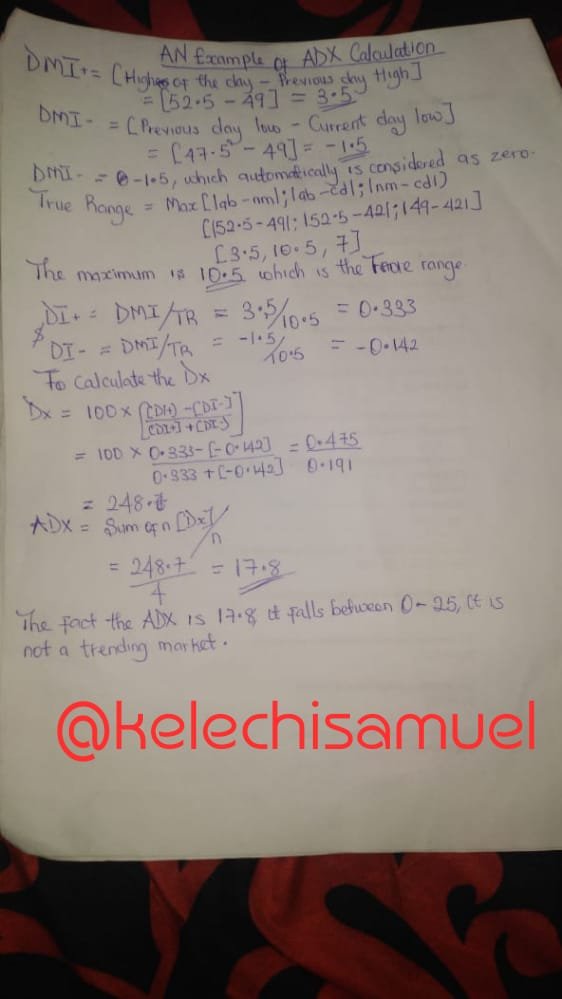 AN Example of ADX Calculation
DMI+ = [Highes of the day - Previous day High]
= [52.5 - 49] = 3.5
DMI- = [Previous day low - Current day low]
= [47.5 - 49] = -1.5
DMI- = 0-1.5, which automatically is considered as zero.
True Range = Max [|ab-nm|; |ab-cd|; |nm-cd|)
[|52.5-49|; |52.5-42|; |49-42|]
[3.5, 10.5, 7]
The maximum is 10.5 which is the range
DI+ = DMI/TR = 3.5/10.5 = 0.333
$ DI- = DMI/TR = -1.5/10.5 = -0.142
To Calculate the Dx
Dx = 100 x [[DI+) - [DI-]]
[[DI+] + [DI-]]
= 100 x 0.333 - [-0.142] = 0.475
0.333 + [-0.142] 0.191
= 248.7
ADX = Sum of n [Dx]/n
= 248.7 = 17.8
4
The fact the ADX is 17.8 it falls between 0-25, it is
not a trending market.
@kelechisamuel